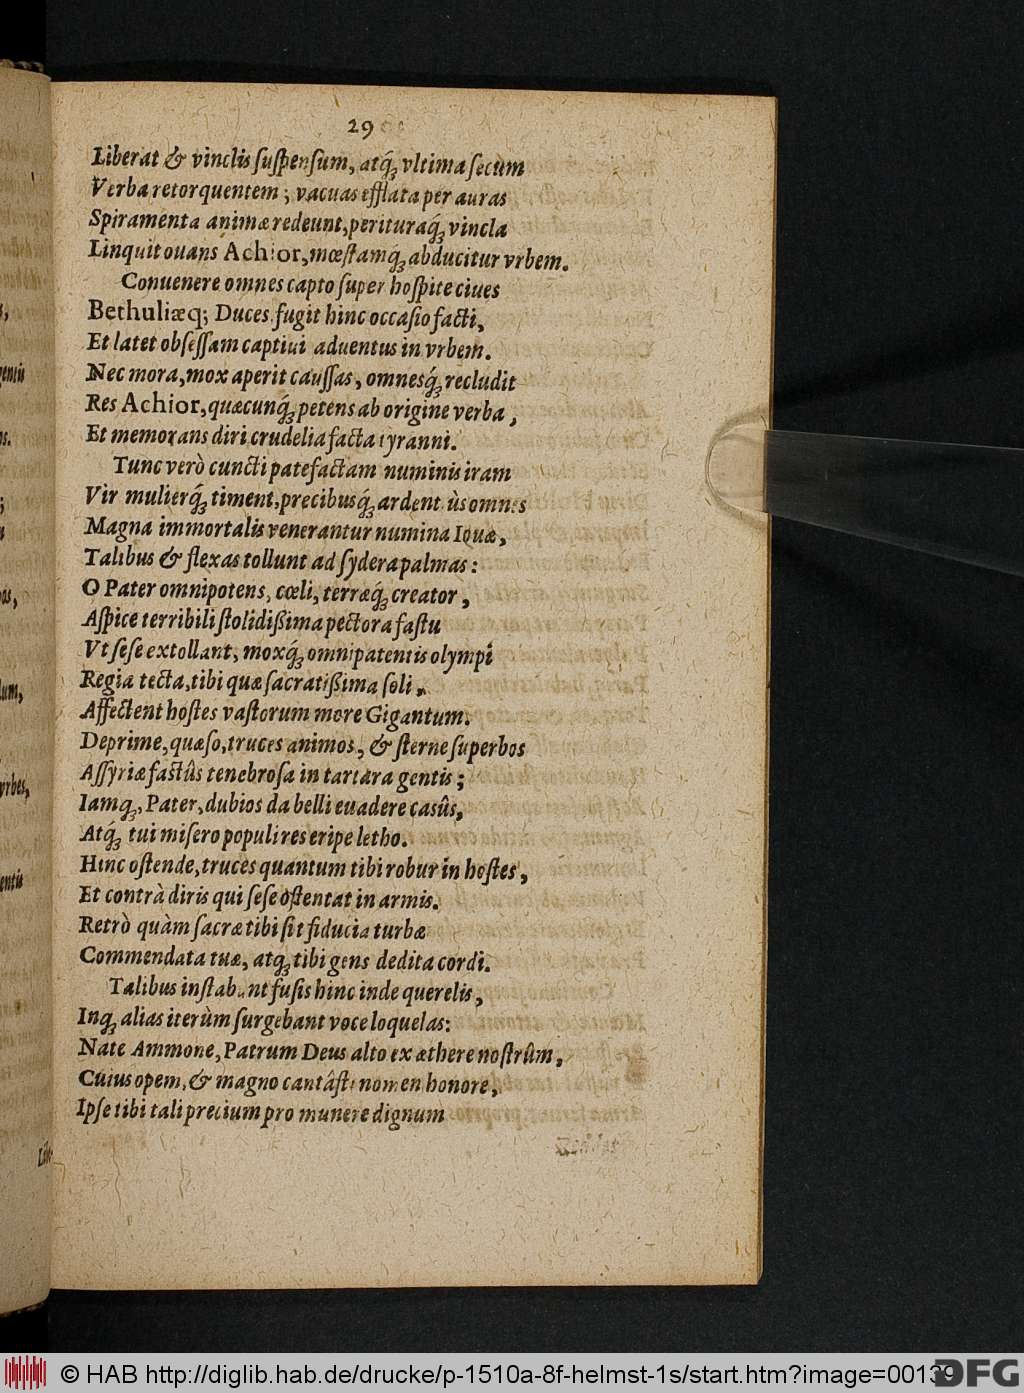 29
Liberat & vinclis suspensum, atq́; vltima secum
Verba retorquentem; vacuas efflata per auras
Spiramenta animæ redeunt, perituraq́; vincla
Linquit ouans Achior, mœstamq́; abducitur vrbem.
Conuenere omnes capto super hospite ciues
Bethuliæq; Duces, fugit hinc occasio facti,
Et latet obsessam captiui aduentus in vrbem.
Nec mora, mox aperit caussas, omnesq́; recludit
Res Achior, quæcunq́; petens ab origine verba,
Et memorans diri crudelia facta tyranni.
Tunc verò cuncti patefactam numinis iram
Vir mulierq́; timent, precibusq́; ardentiùs omnes
Magna immortalis venerantur numina Iouæ,
Talibus & flexas tollunt ad sydera palmas:
O Pater omnipotens, cœli, terræq́; creator,
Aspice terribili stolidißima pectora fastu
Vt sese extollant, moxq́; omnipatentis olympi
Regia tecta, tibi quæ sacratißima soli,
Affectent hostes vastorum more Gigantum.
Deprime, quæso, truces animos, & sterne superbos
Assyriæ factûs tenebrosa in tartara gentis;
Iamq;, Pater, dubios da belli euadere casûs,
Atq́; tui misero populi res eripe letho.
Hinc ostende, truces quantum tibi robur in hostes,
Et contrà diris qui sese ostentat in armis.
Retrò quàm sacræ tibi sit fiducia turbæ
Commendata tuæ, atq; tibi gens dedita cordi.
Talibus instabant fusis hinc inde querelis,
Inq; alias iterùm surgebant voce loquelas:
Nate Ammone, Patrum Deus alto ex æthere nostrûm,
Cuius opem, & magno cantâsti nomen honore,
Ipse tibi tali precium pro munere dignum
© HAB http://diglib.hab.de/drucke/p-1510a-8f-helmst-1s/start.htm?image=00139
DFG